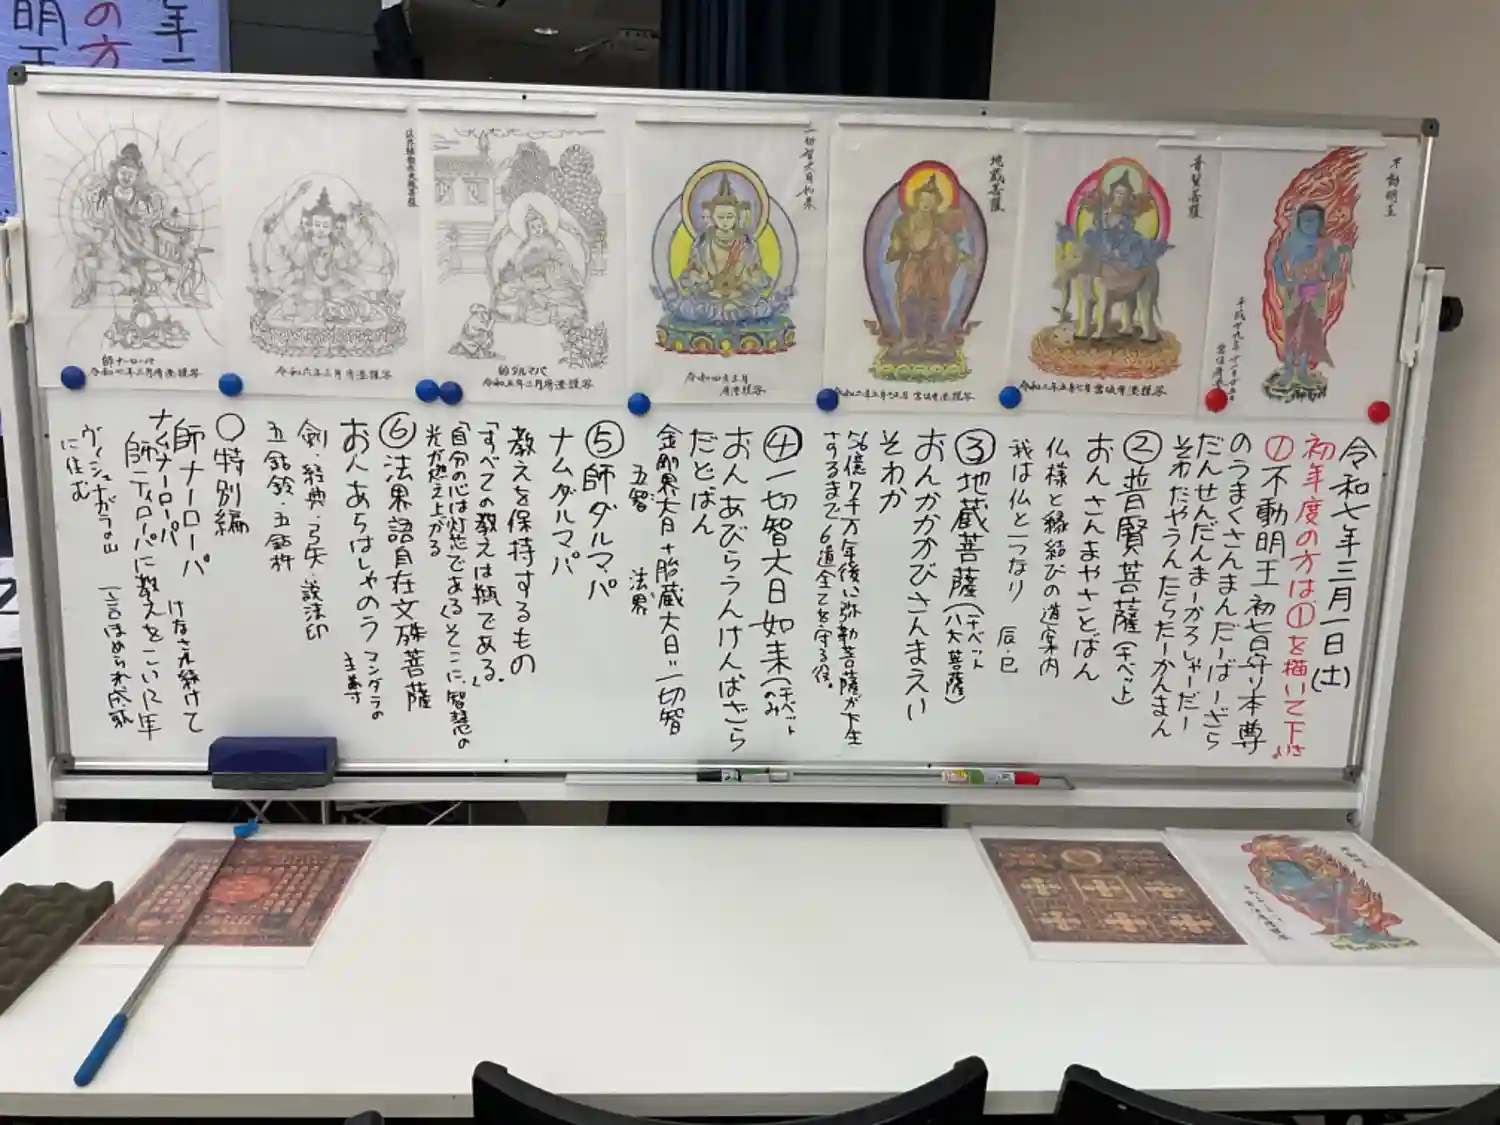 令和七年三月一日(土)
初年度の方は①を描いて下さい。
①不動明王 初七日守り本尊
のうまくさんまんだーばーざら
だんせんだんまーかろしゃーだー
そわたやうんたらたーかんまん
②普賢菩薩(チベット)
おんさんまやさとばん
仏様と縁結びの道案内
我は仏と一つなり 辰・巳
③地蔵菩薩(チベット 八大菩薩)
おんかかかびさんまえい
そわか
56億7千万年後に弥勒菩薩が下生
するまで6道全てを守る役。
④一切智大日如来(チベットのみ)
おんあびらうんけんばざら
だとばん
金剛界大日+胎蔵大日=一切智
五智 法界
⑤師ダルマパ
ナムダルマパ
教えを保持するもの
「すべての教えは瓶である。
「自分の心は灯芯である」そこに、智慧の
光が燃え上がる
⑥法界語自在文殊菩薩
おんあらはしゃのう マンダラの主尊
剣・経典・弓矢・説法印
五鈷鈴・五鈷杵
○特別編
師ナーローパ けなされ続けて
ナムナーローパ
師ティローパに教えをこいに12年
一言ほめられ成就
に住む
不動明王
普賢菩薩
地蔵菩薩
一切智大日如来
令和四年三月
師ダルマパ
令和五年三月
令和六年三月
師ナーローパ
令和七年三月
年一
の方
明王